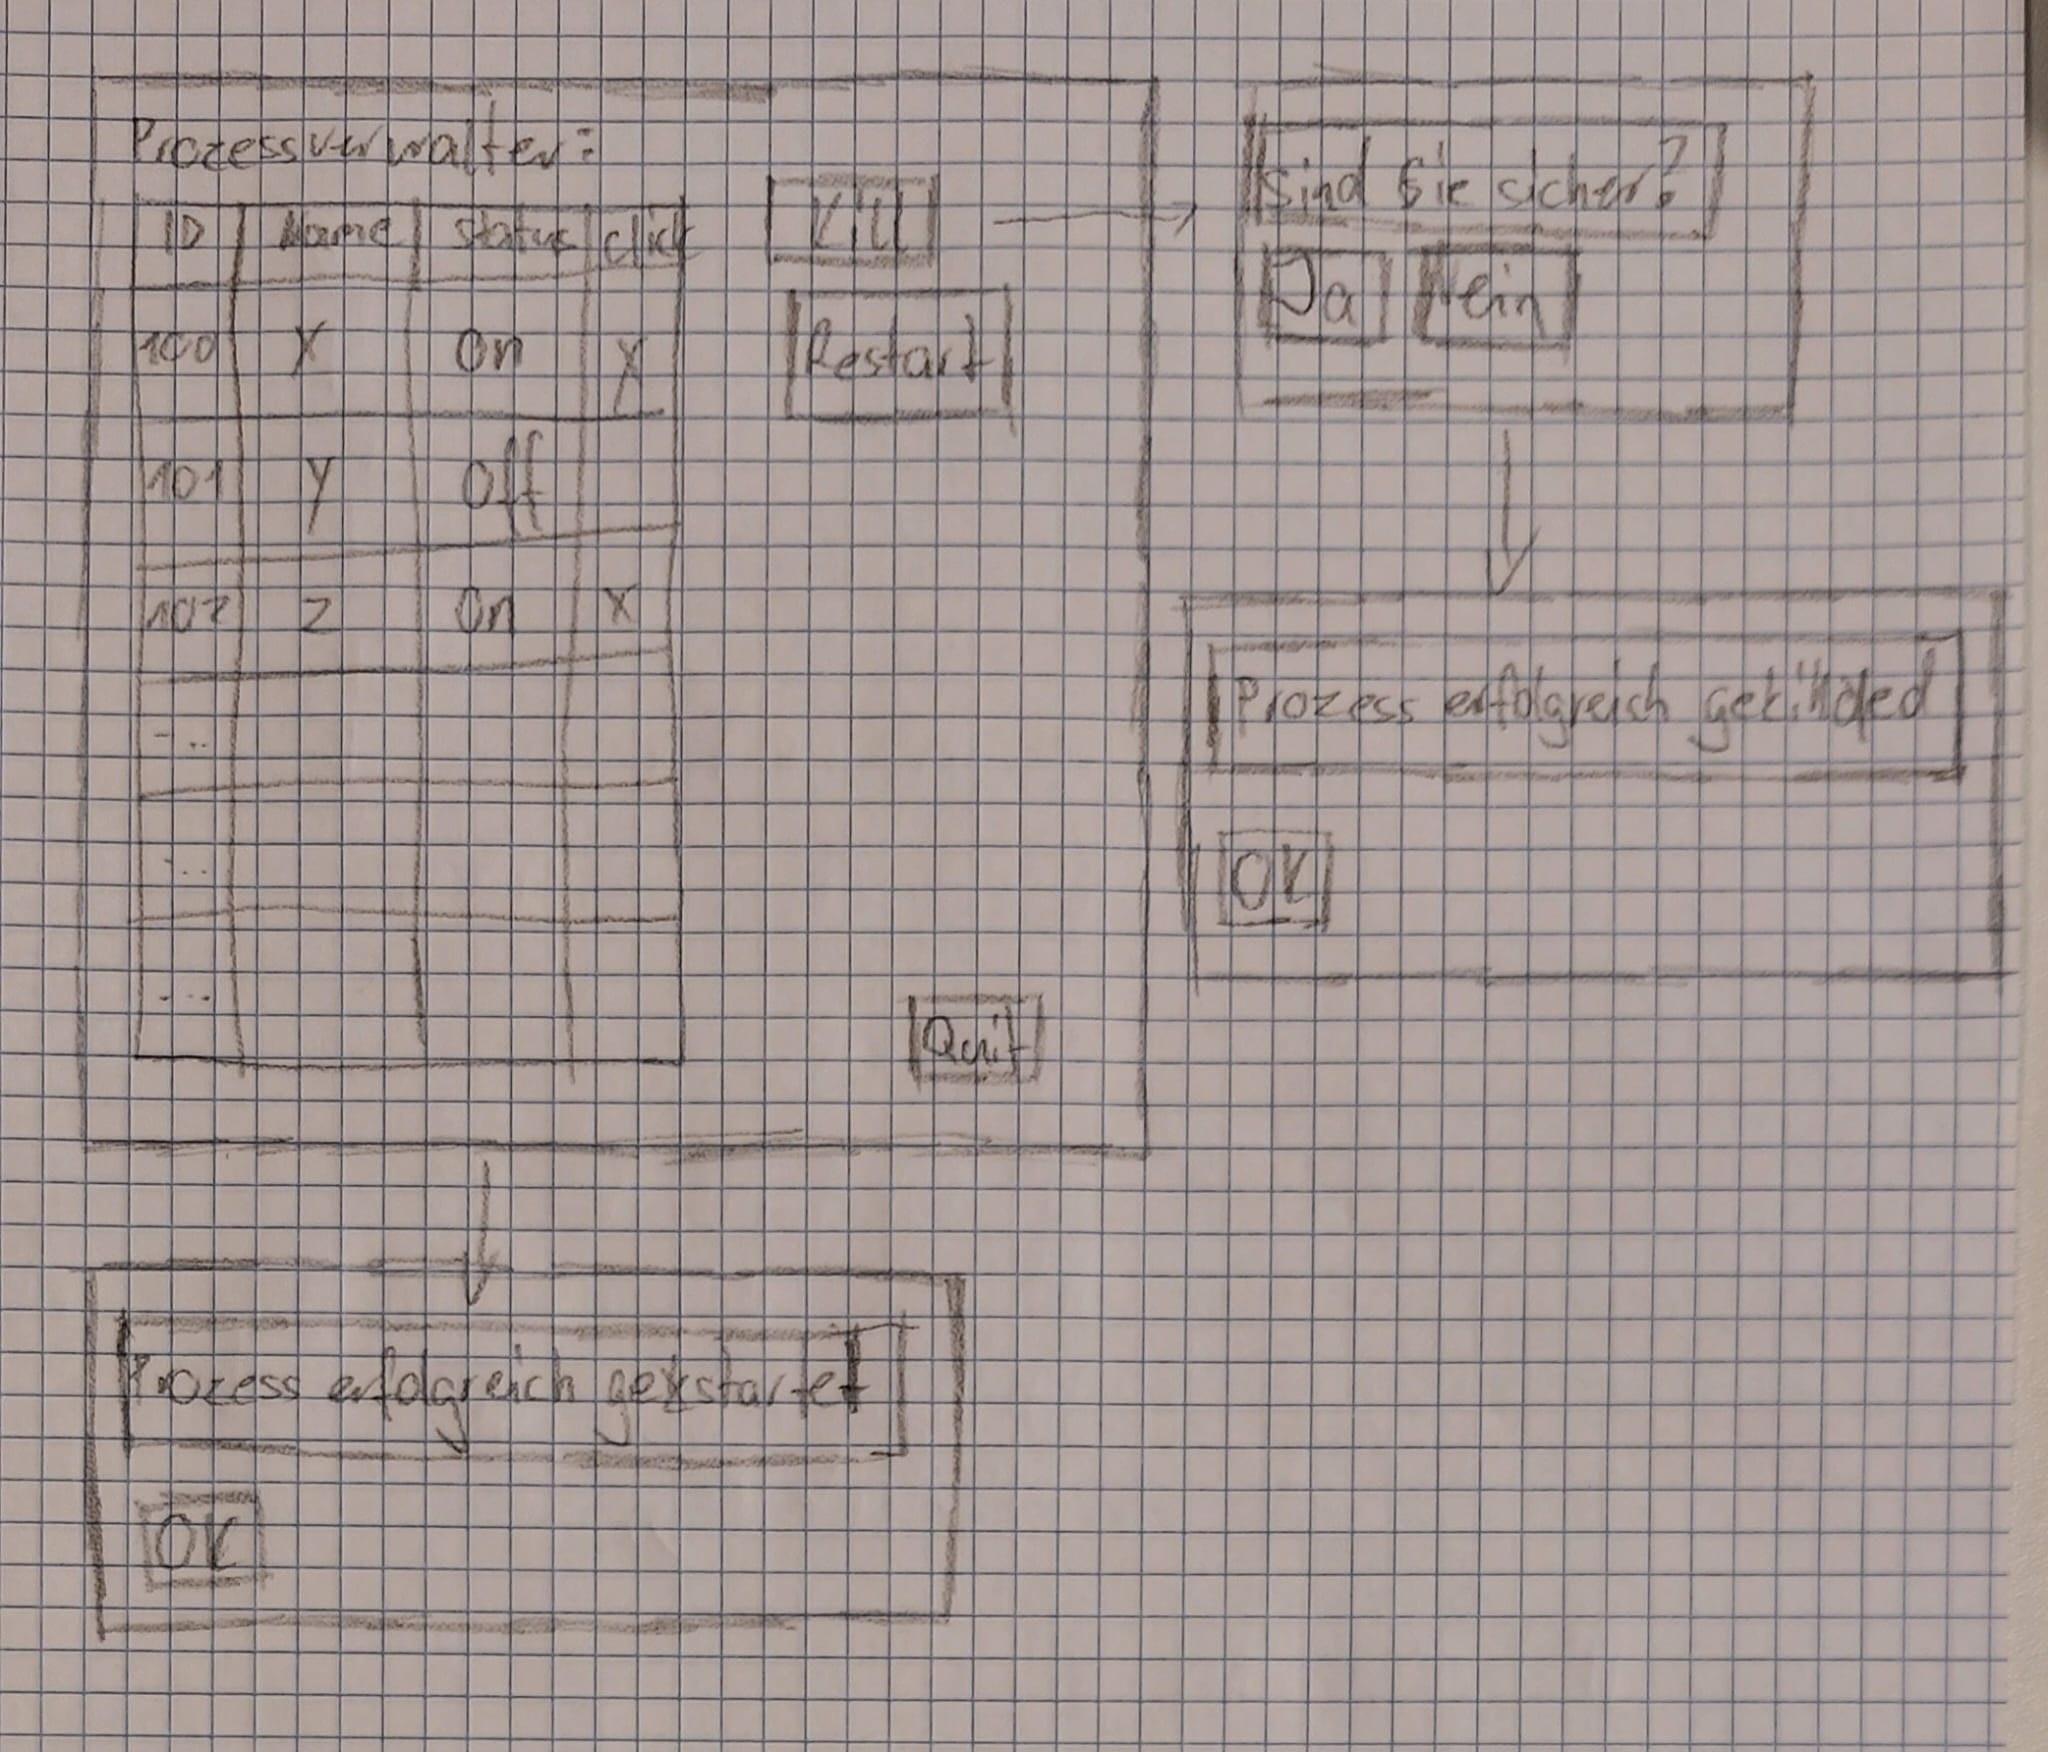 Prozessverwalter:
ID Name Status click
100 X On X
101 Y Off
102 Z On X
...
...
...
Kill
Restart
Quit
Sind Sie sicher?
Ja Nein
Prozess erfolgreich
OK
Prozess erfolgreich
OK